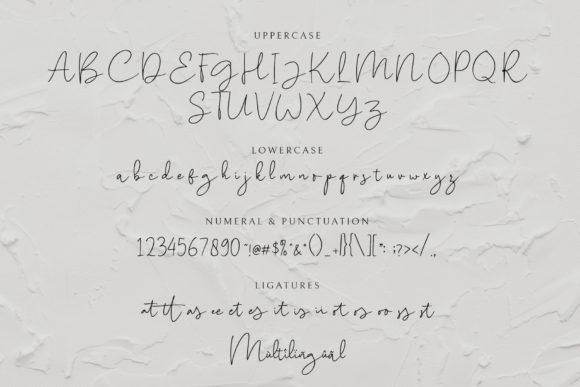 UPPERCASE
ABCDEFGHIJKLMNOPQR
STUVWXYZ
LOWERCASE
abcdefghijklmnopqrstuvwxyz
NUMERAL & PUNCTUATION
1234567890~!@#$%^&*()_+|}{\][":;?></.,
LIGATURES
at tt as ee et es it is ii ot os oo ss st
Mùltîlïñgûäl